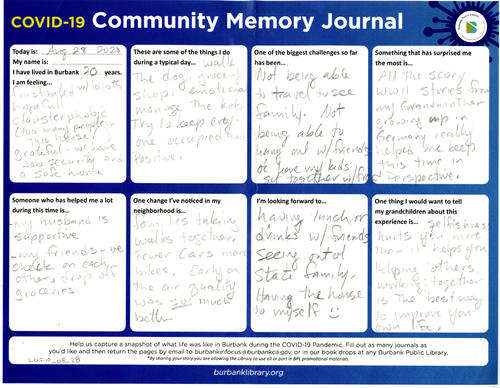 COVID-19 Community Memory Journal
BURBANK PUBLIC LIBRARY
B
Today is: Aug 28 2023
My name is:
I have lived in Burbank 20 years.
I am feeling...
frustrated w/ idiots
hopefull
clausterphobic
(too many people in
this house.
grateful - we have
Job security and
a safe home
These are some of the things I do
during a typical day... walk
the dog, grocery
shop. emotionally
manage the kids
try to keep every-
one occupied and
Positive.
One of the biggest challenges so far
has been...
Not being able
to travel to see
family. Not
being able to
hang out w/ friends
or have my kids
get together w/
Something that has surprised me
the most is...
All the scary
WWII stories from
my Grandmother
growing up in
Germany really
helped me keep
this time in
Perspective.
Someone who has helped me a lot
during this time is...
-my husband is
supportive
-my friends - we
check on each
other, drop off
groceries
One change I've noticed in my
neighborhood is...
families taking
walks together.
Fewer cars more
bikes. Early on
the air quality
was so much
better
I'm looking forward to...
having lunch or
drinks w/ friends
Seeing out of
State family.
Having the house
to myself ☺
One thing I would want to tell
my grandchildren about this
experience is... Selfishness
hurts you more
than it helps you
Helping others
working together
is the best way
to improve your
own life.
Help us capture a snapshot of what life was like in Burbank during the COVID-19 Pandemic. Fill out as many journals as
you'd like and then return the pages by email to burbankinfocus@burbankca.gov, or in our book drops at any Burbank Public Library.
*By sharing your story you are allowing the Library to use all or part in BPL promotional materials.
2020_08_28
burbanklibrary.org